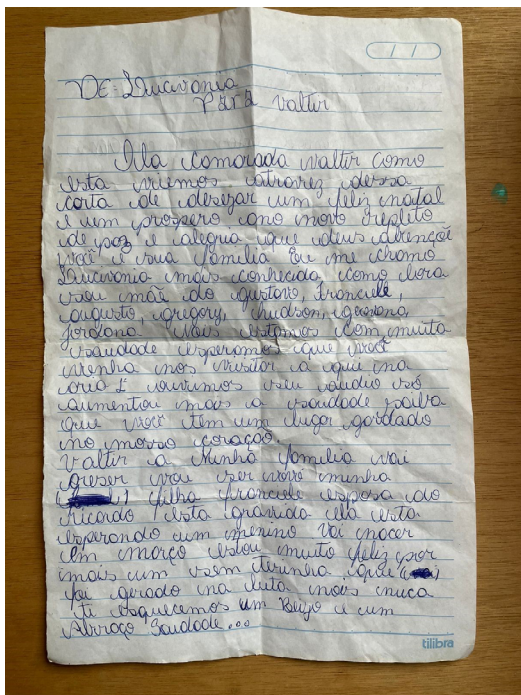 DE: Lucivonia
Para valtir
Ola Camarada valtir como
esta viemos atravez dessa
carta de desezar um feliz natal
e um prospero ano novo repleto
de paz e alegria que deus abençoe
você e sua família Eu me chamo
Lucivonia mais conhecida como
sou mãe do gustavo, francule,
augusto, gregory, hudson,
jordana Nois estamos com muita
saudade esperamos que você
venha nos visitar a qui na
ouvimos seu audio so
aumentou mais a saudade saiba
que você tem um lugar gardado
no nosso coração
Valtir a Minha família vai
creser vou ser vovó minha
filha francule esposa do
ricardo esta gravida ela esta
esperando um menino Vai nacer
em março estou muito feliz por
mais um sem terrinha que
foi gerado na luta mais nuca
ti esquecemos um Beijo e um
Abraço Saudade...
tilibra